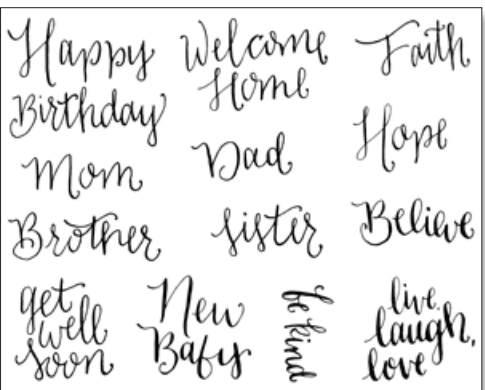 Happy
Birthday
Welcome
Home
Faith
Mom
Dad
Hope
Brother
sister
Believe
get
well
soon
New
Baby
be kind
live,
laugh,
love